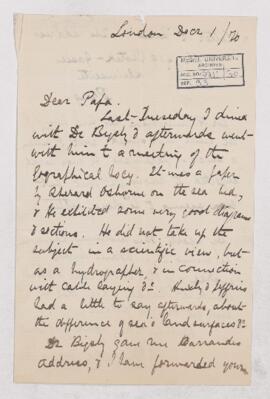 London Decr 1/70
McGILL UNIVERSITY
ARCHIVES
ACC. NO.
REF.
Dear Papa.
Last Tuesday I dined
with Dr Bigsby & afterwards went
with him to a meeting of the
Geographical Socy. It was a paper
by Sherard Osborne on the sea bed,
& He exhibited some very good diagrams
& sections. He did not take up the
subject in a scientific view, but
as a hydrographer, & in connection
with cable laying &c. Huxley & Jeffries
had a little to say afterwards, about
the difference of sea & land surfaces &c
Dr Bigsby gave me Barrandes
address, & I have forwarded your